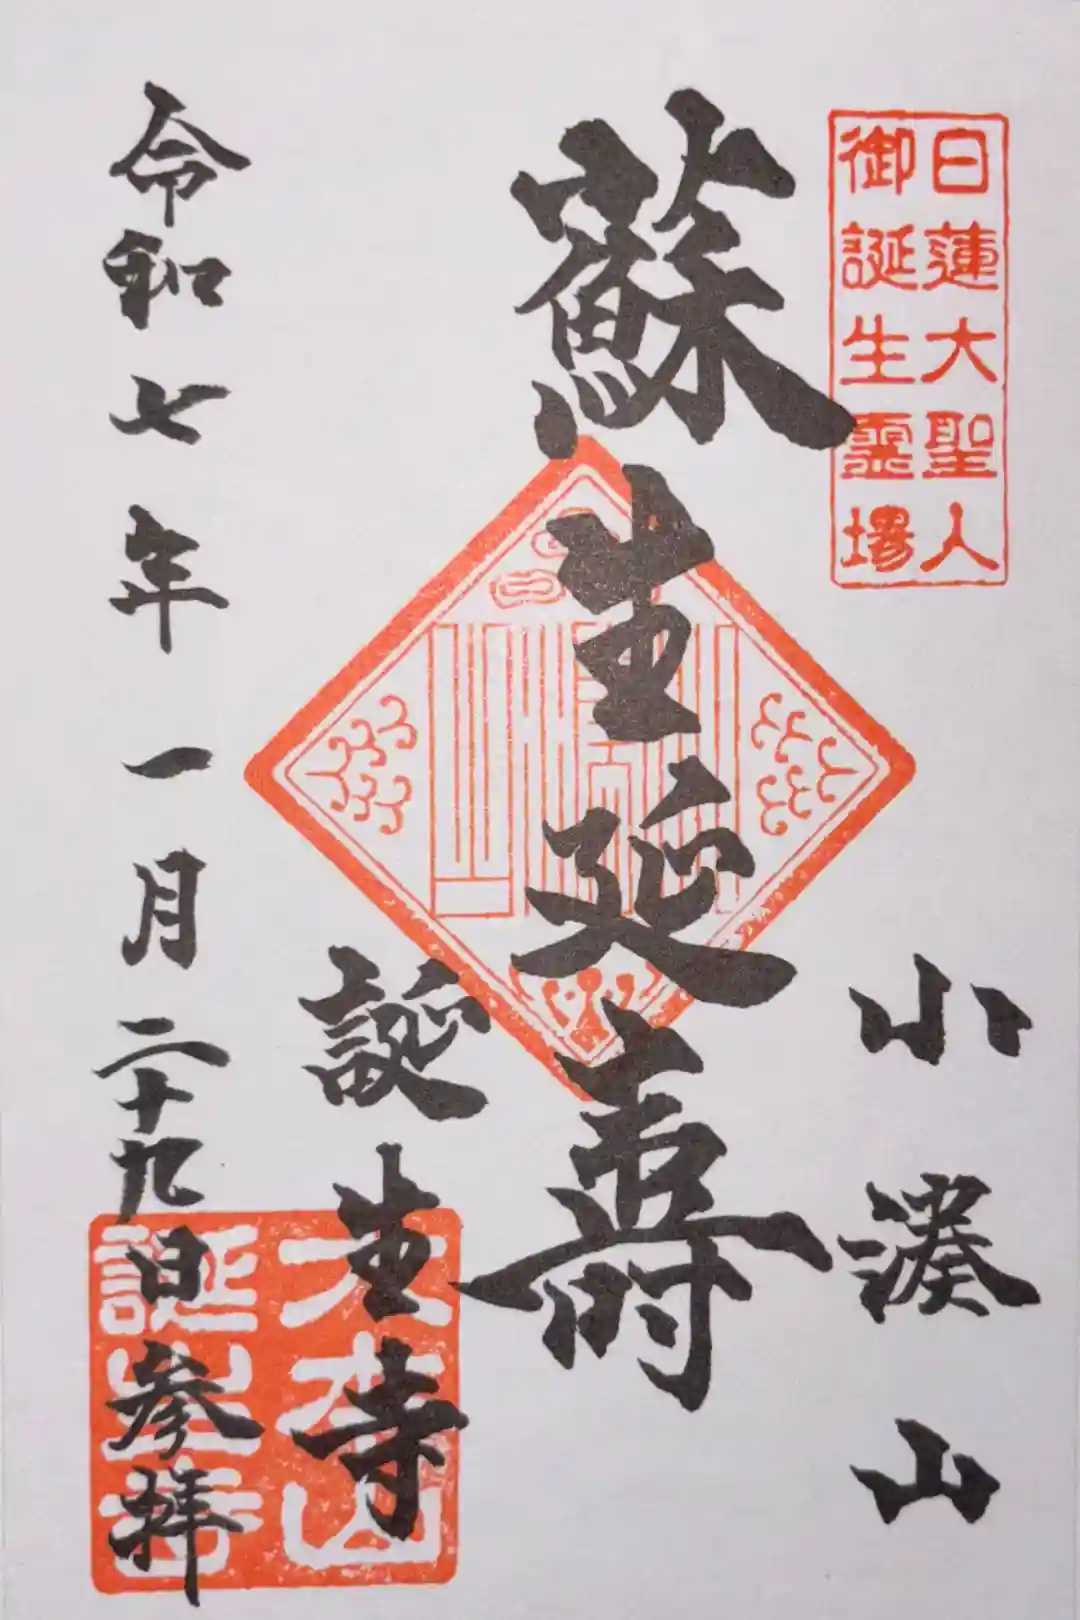 日蓮大聖人
御誕生霊場
小湊山
蘇生延壽
誕生寺
大本山
誕生寺
令和七年一月二十九日参拝